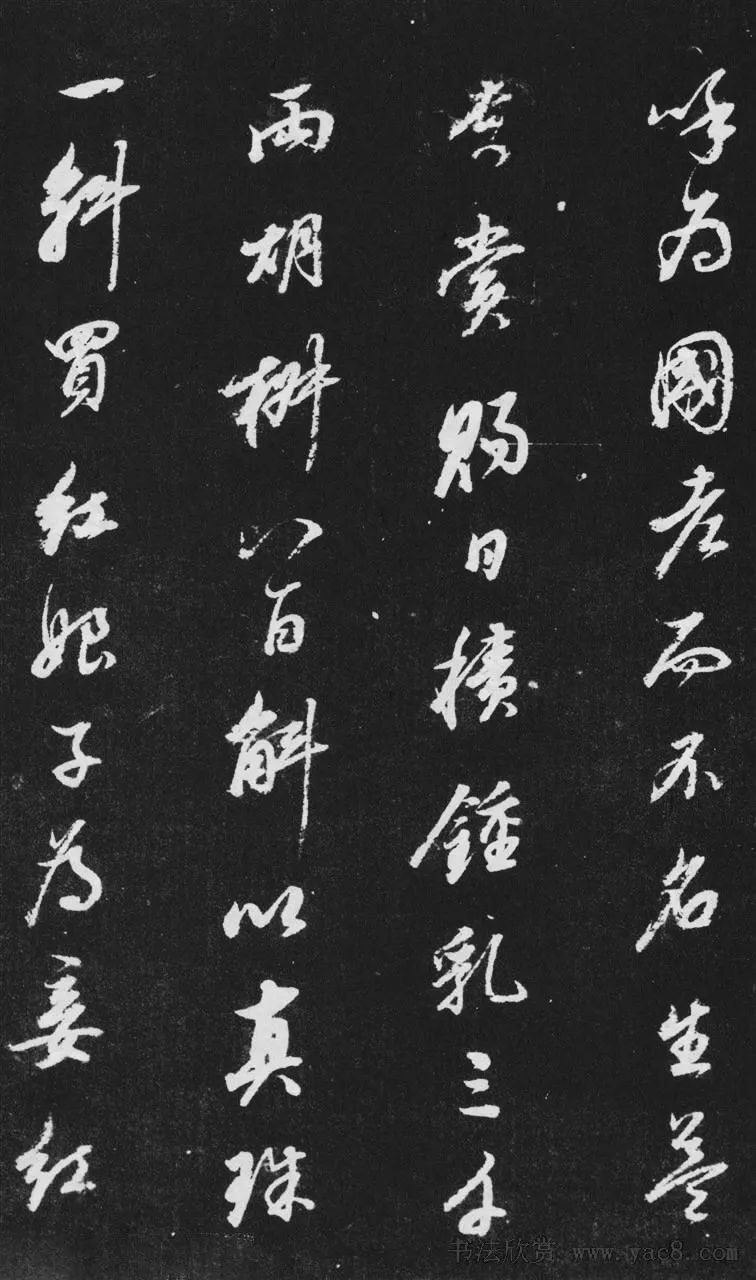 呼為國老而不名生益
貴賞賜日積鍾乳三千
兩胡椒八百斛以真珠
一斛買紅娘子為妾紅
书法欣赏 www.yac8.com